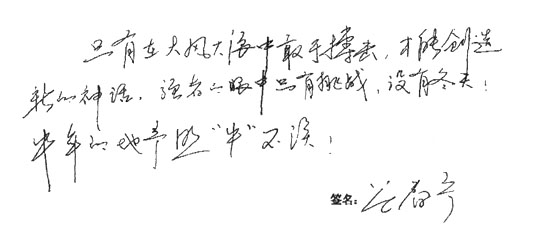 只有在大风大浪中敢于搏击，才能创造
新的神话，强者的眼中只有挑战，没有冬天！
牛年的地产照"牛"不误！
签名：